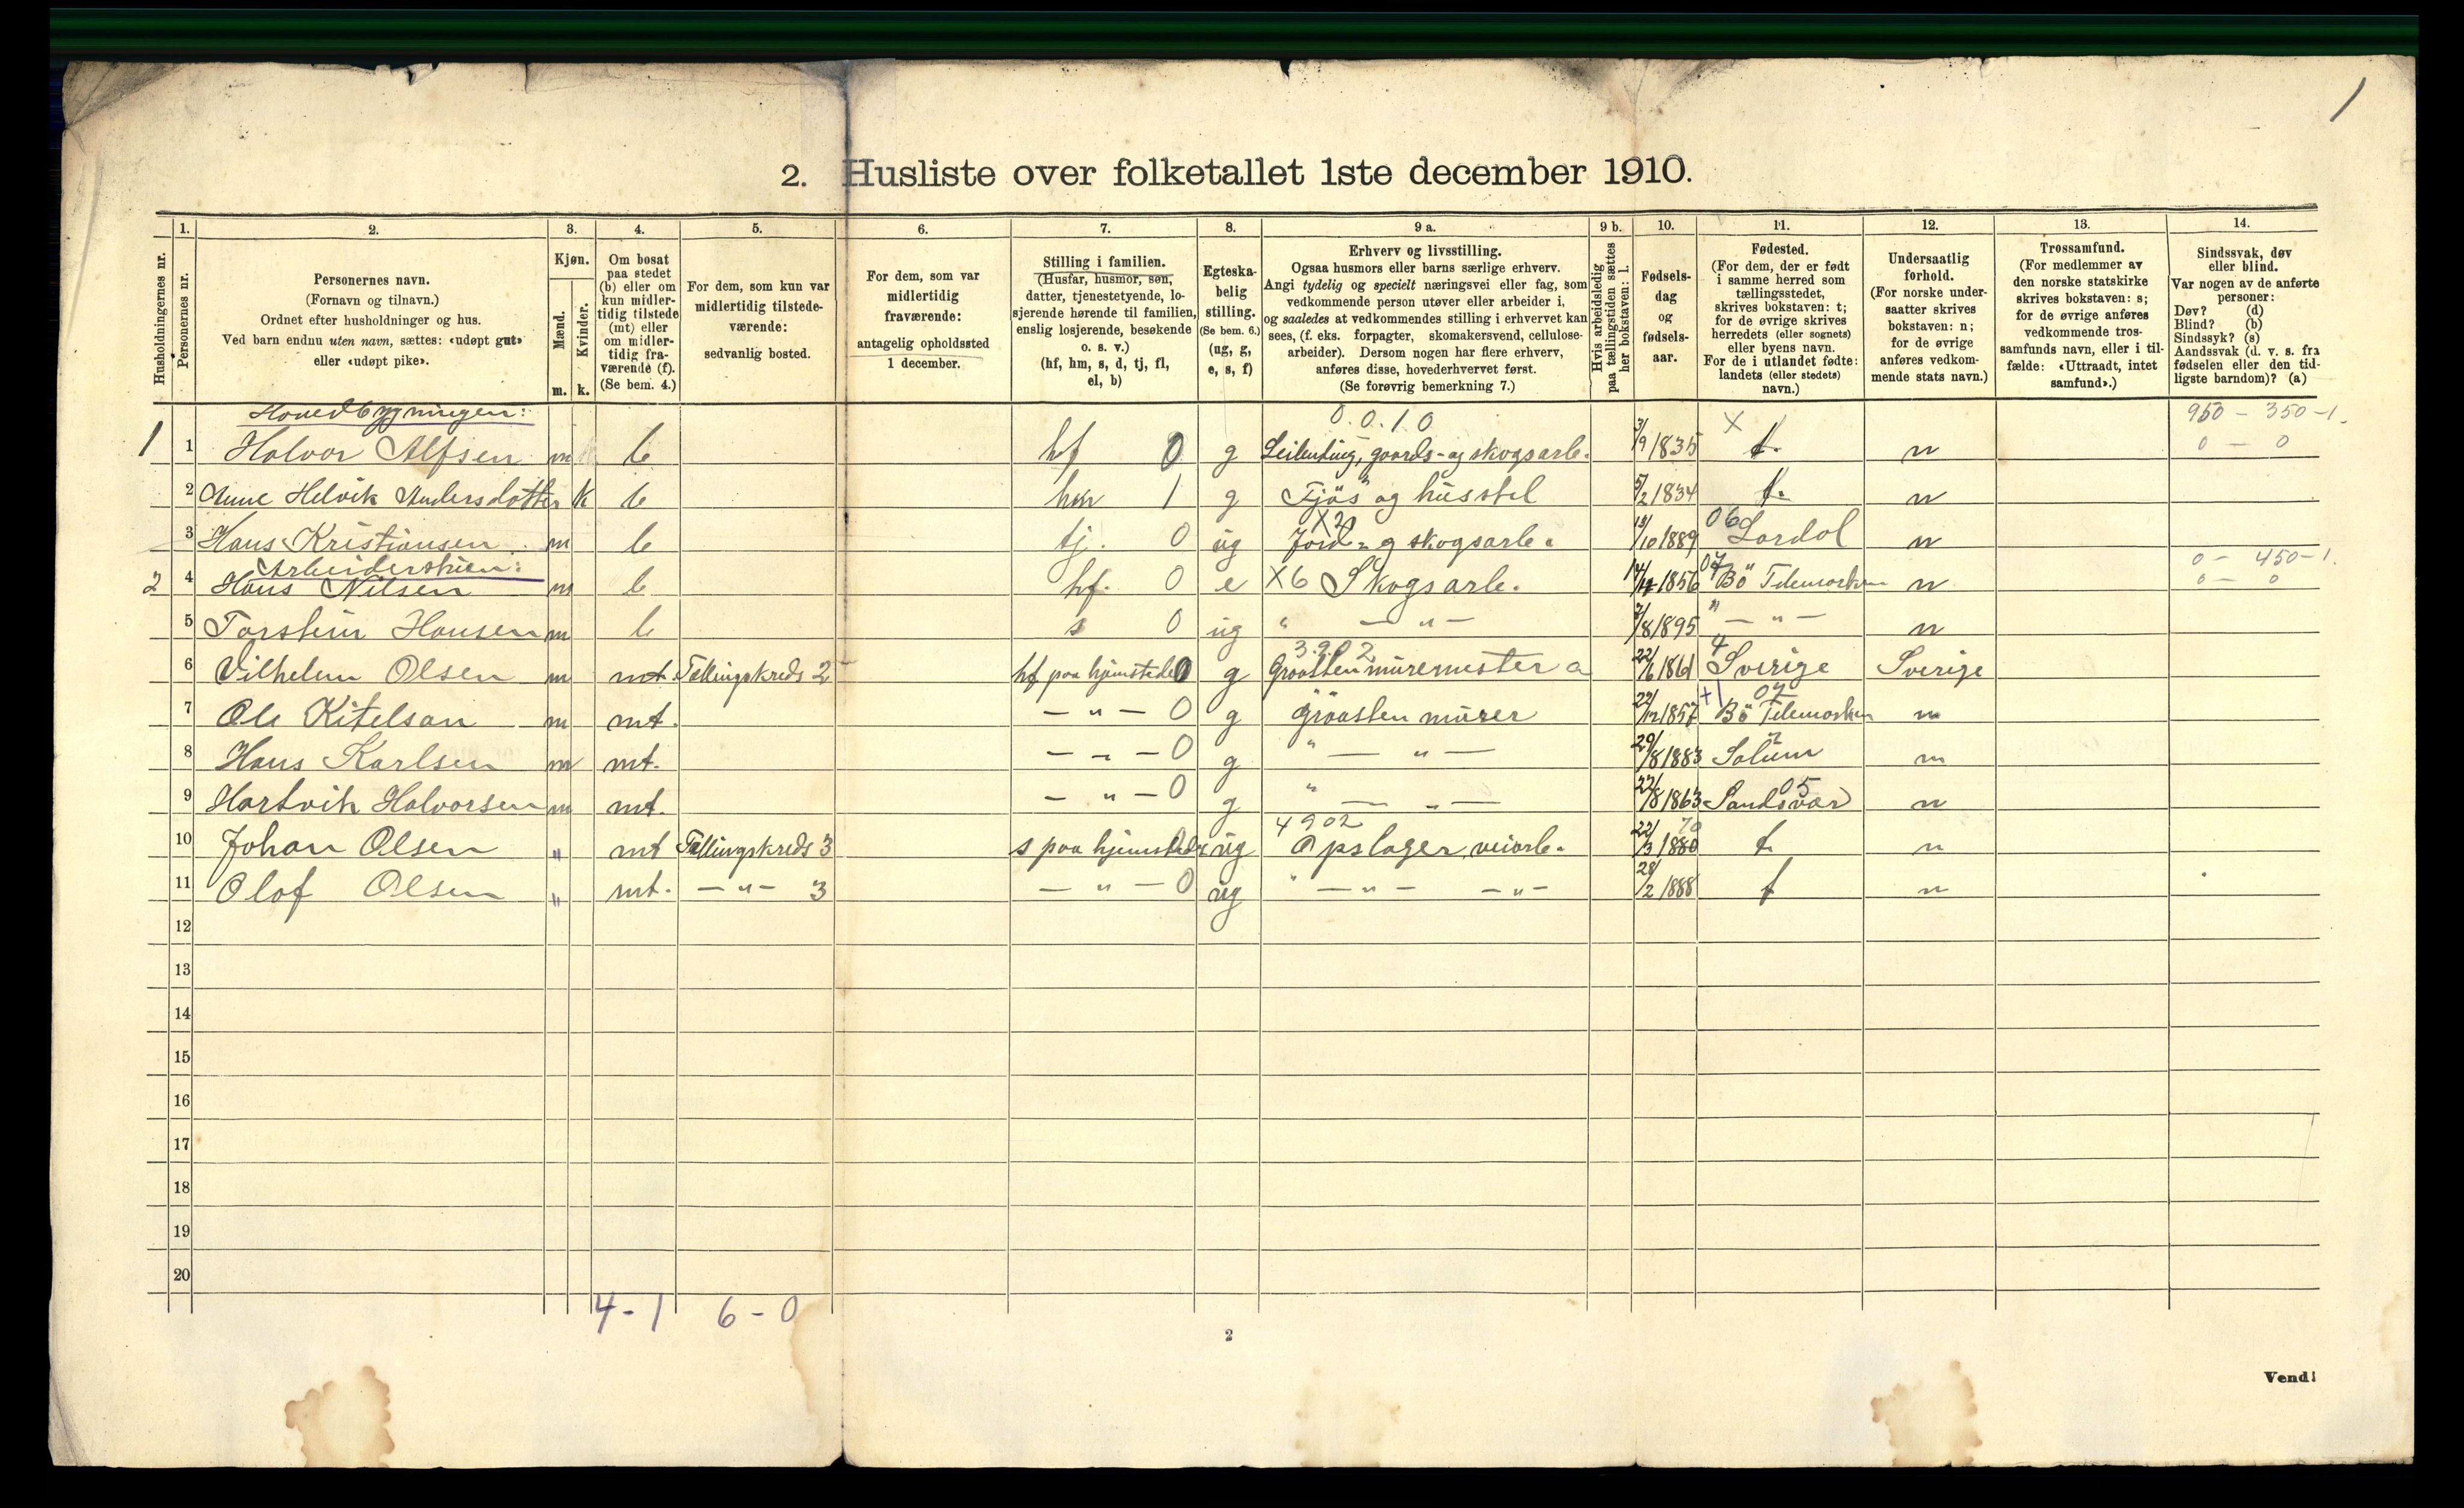 1
2. Husliste over folketallet 1ste december 1910.
1. 2. 3. 4. 5. 6. 7. 8. 9 a. 9 b. 10. 11. 12. 13. 14.
Husholdningernes nr.
Personernes nr.
Personernes navn.
(Fornavn og tilnavn.)
Ordnet efter husholdninger og hus.
Ved barn endnu uten navn, sættes: «udøpt gut»
eller «udøpt pike».
Kjøn.
Mænd.
Kvinder.
m. k.
Om bosat
paa stedet
(b) eller om
kun midler-
tidig tilstede
(mt) eller
om midler-
tidig fra-
værende (f).
(Se bem. 4.)
For dem, som kun var
midlertidig tilstede-
værende:
sedvanlig bosted.
For dem, som var
midlertidig
fraværende:
antagelig opholdssted
1 december.
Stilling i familien.
(Husfar, husmor, søn,
datter, tjenestetyende, lo-
sjerende hørende til familien,
enslig losjerende, besøkende
o. s. v.)
(hf, hm, s, d, tj, fl,
el, b)
Egteska-
belig
stilling.
(Se bem. 6.)
(ug, g,
e, s, f)
Erhverv og livsstilling.
Ogsaa husmors eller barns særlige erhverv.
Angi tydelig og specielt næringsvei eller fag, som
vedkommende person utøver eller arbeider i,
og saaledes at vedkommendes stilling i erhvervet kan
sees, (f. eks. forpagter, skomakersvend, cellulose-
arbeider). Dersom nogen har flere erhverv,
anføres disse, hovederhvervet først.
(Se forøvrig bemerkning 7.)
Hvis arbeidsledig
paa tællingstiden sættes
her bokstaven: l.
Fødsels-
dag
og
fødsels-
aar.
Fødested.
(For dem, der er født
i samme herred som
tællingsstedet,
skrives bokstaven: t;
for de øvrige skrives
herredets (eller sognets)
eller byens navn.
For de i utlandet fødte:
landets (eller stedets)
navn.)
Undersaatlig
forhold.
(For norske under-
saatter skrives
bokstaven: n;
for de øvrige
anføres vedkom-
mende stats navn.)
Trossamfund.
(For medlemmer av
den norske statskirke
skrives bokstaven: s;
for de øvrige anføres
vedkommende tros-
samfunds navn, eller i til-
fælde: «Uttraadt, intet
samfund».)
Sindssvak, døv
eller blind.
Var nogen av de anførte
personer:
Døv? (d)
Blind? (b)
Sindssyk? (s)
Aandssvak (d. v. s. fra
fødselen eller den tid-
ligste barndom)? (a)
Hovedbygningen: 0.0.10 X 950 - 350 - 1.
1 1 Halvor Alfsen m b hf 0 g Leilending, gaards- og skogsarb. 3/9 1835 t. n 0 - 0
2 Anne Helvik Andersdotter k b hm 1 g Fjøs og husstel 5/2 1834 t. n
X2 06
3 Hans Kristiansen m b tj. 0 ug Jord- og skogsarb. 13/10 1889 Lardal n
Arbeiderstuen: 07 0 - 450 - 1.
2 4 Hans Nilsen m b hf. 0 e X6 Skogsarb. 14/11 1856 Bö Telemarken n 0 - 0
5 Torstein Hansen m b s 0 ug " — " — 7/8 1895 " — " — n
3.902 4
6 Vilhelm Olsen m mt. Tællingskreds 2 hf paa hjemstedet 0 g Graastenmuremester a 22/6 1861 Sverige Sverige
+1 07
7 Ole Kitelsan m mt. — " — 0 g graasten murer 22/12 1857 Bö Telemarken n
2
8 Hans Karlsen m mt. — " — 0 g " — " — 29/8 1883 Solum n
05
9 Hartvik Halvorsen m mt. — " — 0 g " — " — 22/8 1863 Sandsvær n
4902 70
10 Johan Olsen " mt Tællingskreds 3 s paa hjemstedet ug Opslager, veiarb. 22/3 1880 t. n
11 Olaf Olsen " mt. — " — 3 — " — 0 ug " — " — — " — 28/2 1888 t n
12
13
14
15
16
17
18
19
20
4 - 1 6 - 0
2
Vend!